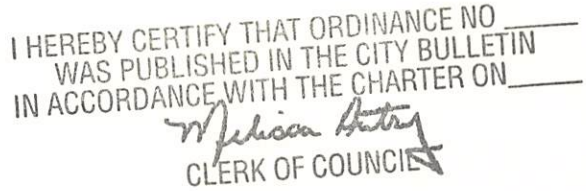 I HEREBY CERTIFY THAT ORDINANCE NO ______
WAS PUBLISHED IN THE CITY BULLETIN
IN ACCORDANCE WITH THE CHARTER ON______
Melissa
CLERK OF COUNCIL